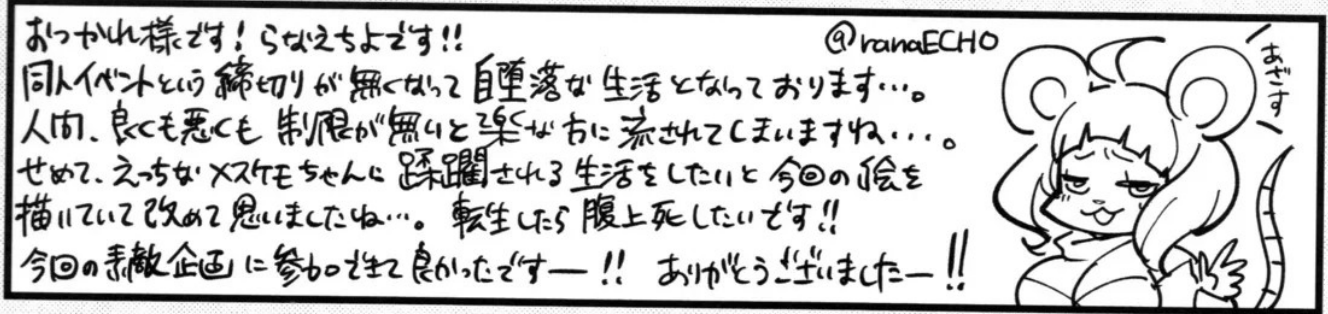 おつかれ様です! らなえちよです!!
@ranaECHO
同人イベントという締切りが無くなって自堕落な生活となっております…。
人間、良くも悪くも制限が無いと楽な方に流されてしまいますね…。
せめて、えっちなメスケモちゃんに蹂躙される生活をしたいと今回の絵を
描いていて改めて思いましたね…。転生したら腹上死したいです!!
今回の素敵企画に参加できて良かったですー!! ありがとうございましたー!!
あざす